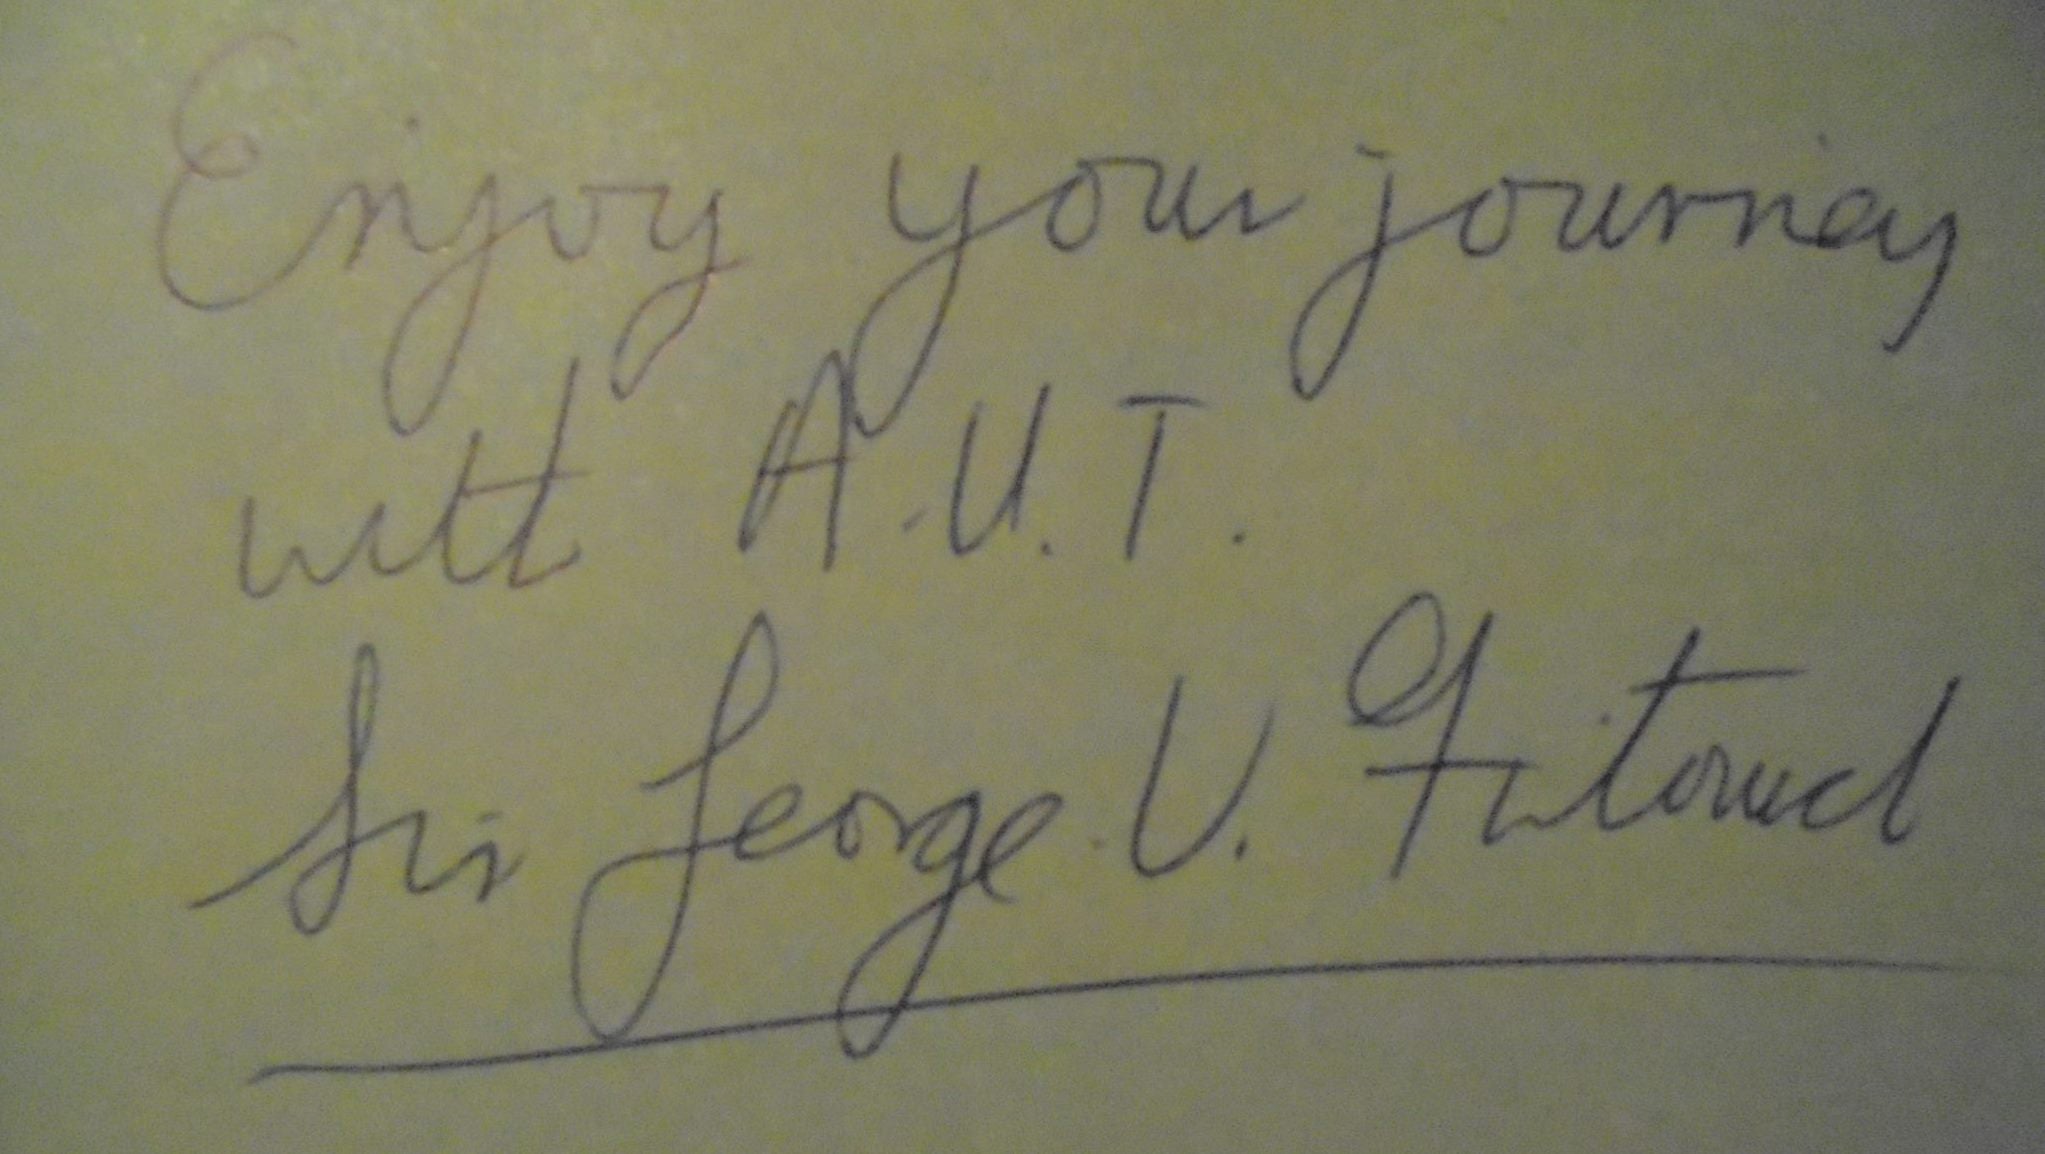 Enjoy your journey
with A.U.T.
Sir George V.